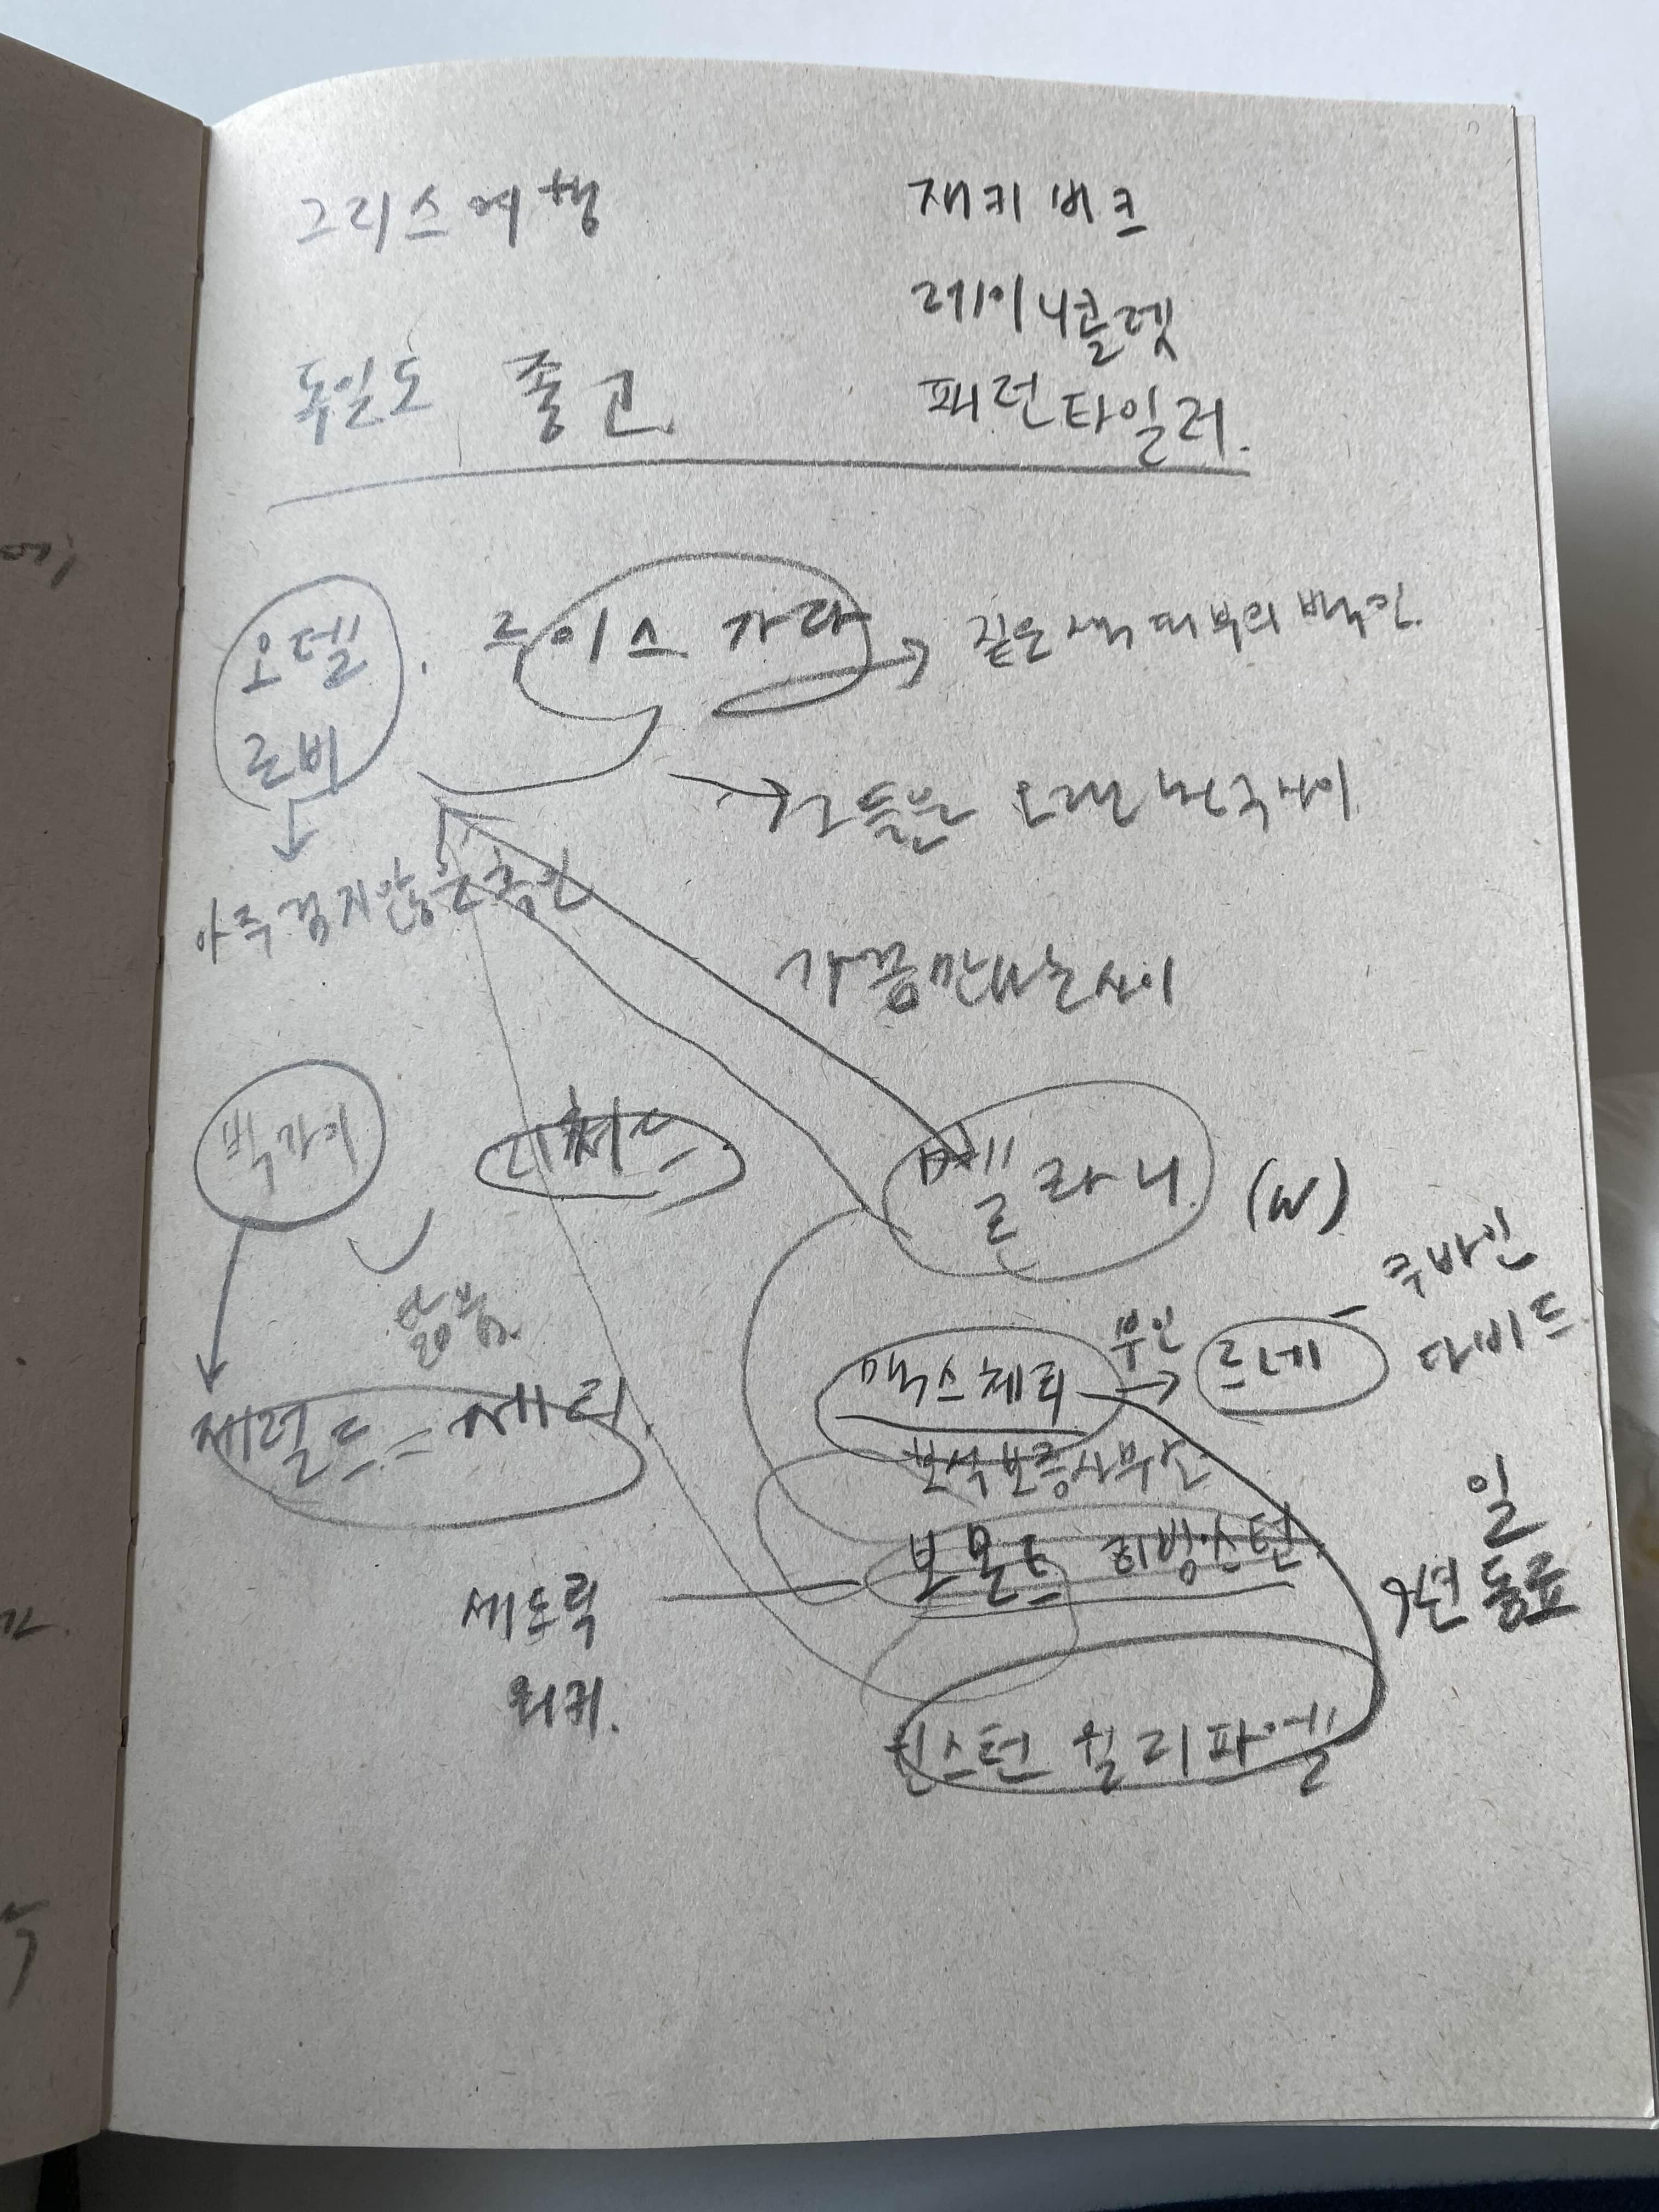 그리스여행
재키버크
레이니콜렛
독일도 좋고
패런타일러.
오델
로비
루이스 가라
짙은색 피부의 백인.
그들은 오랜 친구사이
아주검지않은흑인
가끔만나는사이
빅가이
리처드
멜라니 (W)
닮음.
쿠바인
다비드
맥스체리
부인
르네
제럴드=제리
보석보증사무소
일
9년 동료
보몬트 리빙스턴
세드릭
워커.
윈스턴 윌리파월